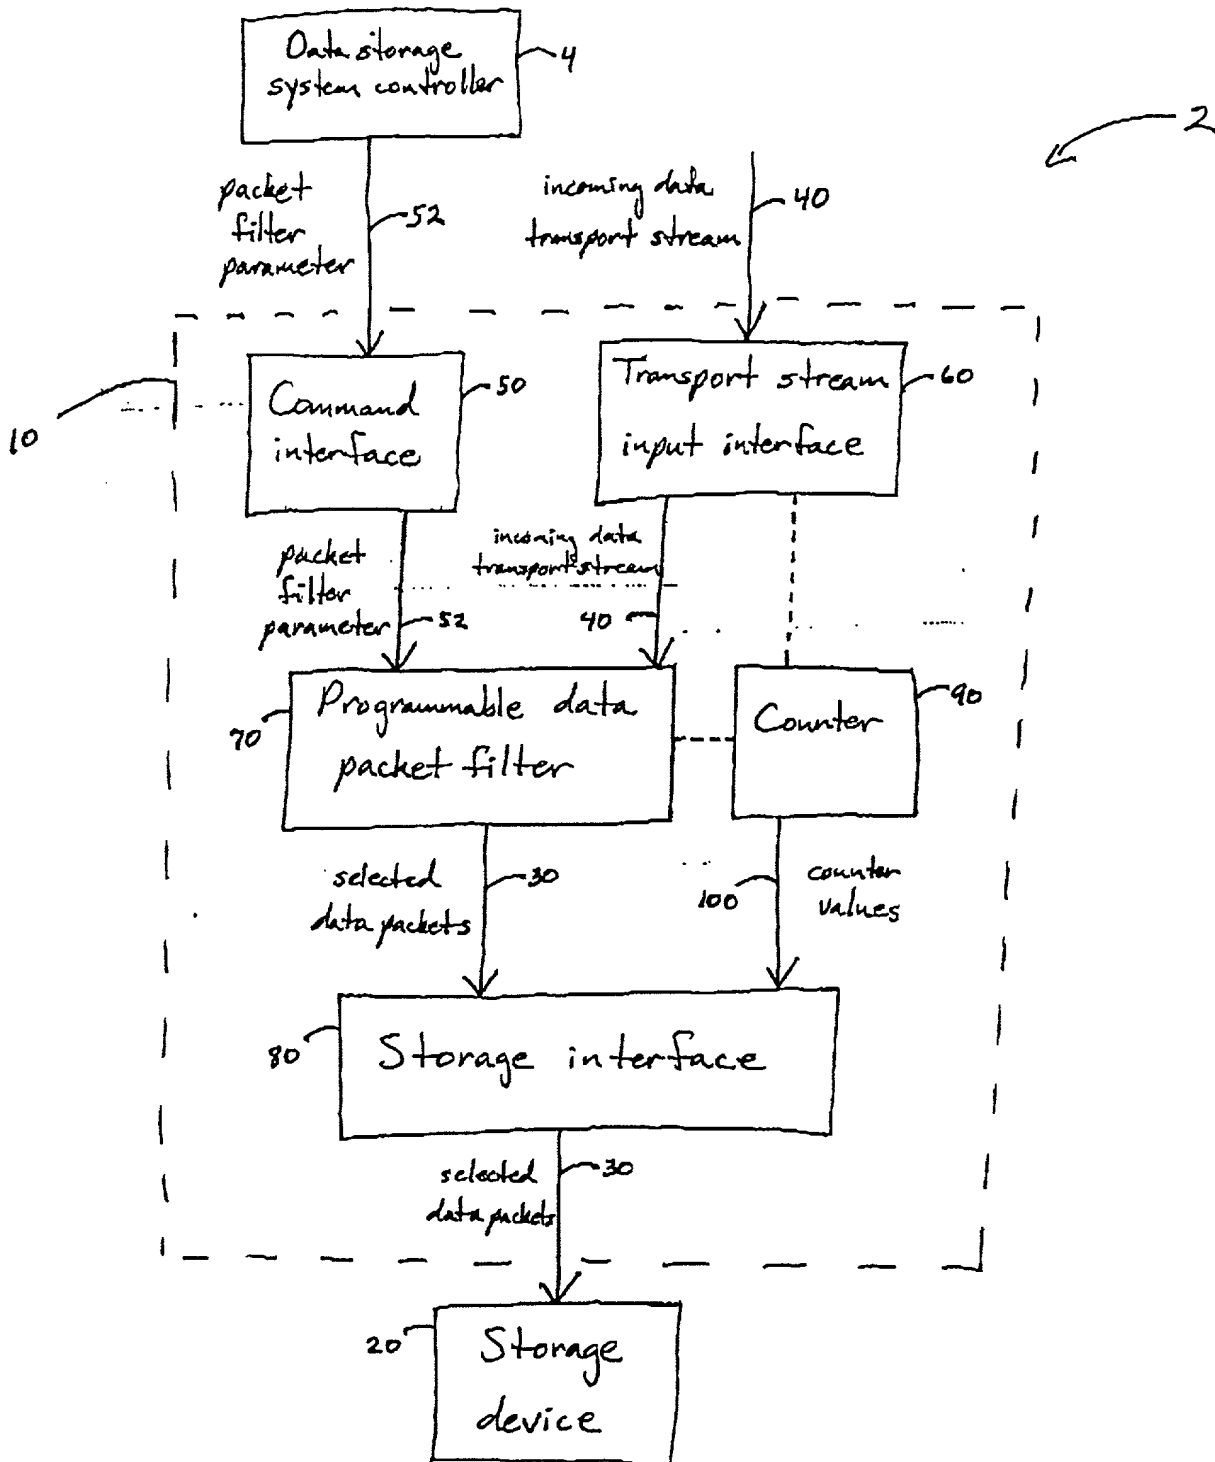 Data storage
system controller
4
2
packet
filter
parameter
52
incoming data
transport stream
40
10
Command
interface
50
Transport stream
input interface
60
packet
filter
parameter
52
incoming data
transport stream
40
Programmable data
packet filter
70
Counter
90
selected
data packets
30
100
counter
values
80
Storage interface
selected
data packets
30
20
Storage
device